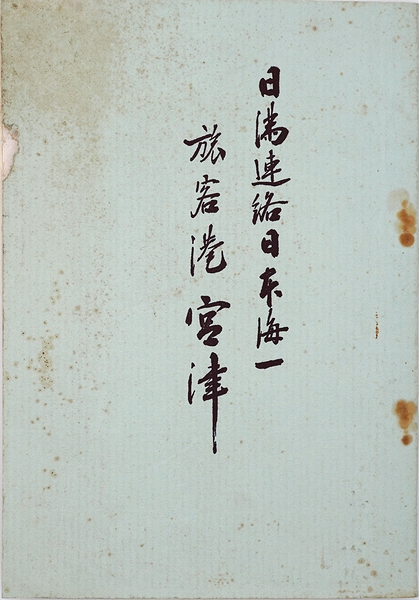 日満連絡日本海一
旅客港 宮津